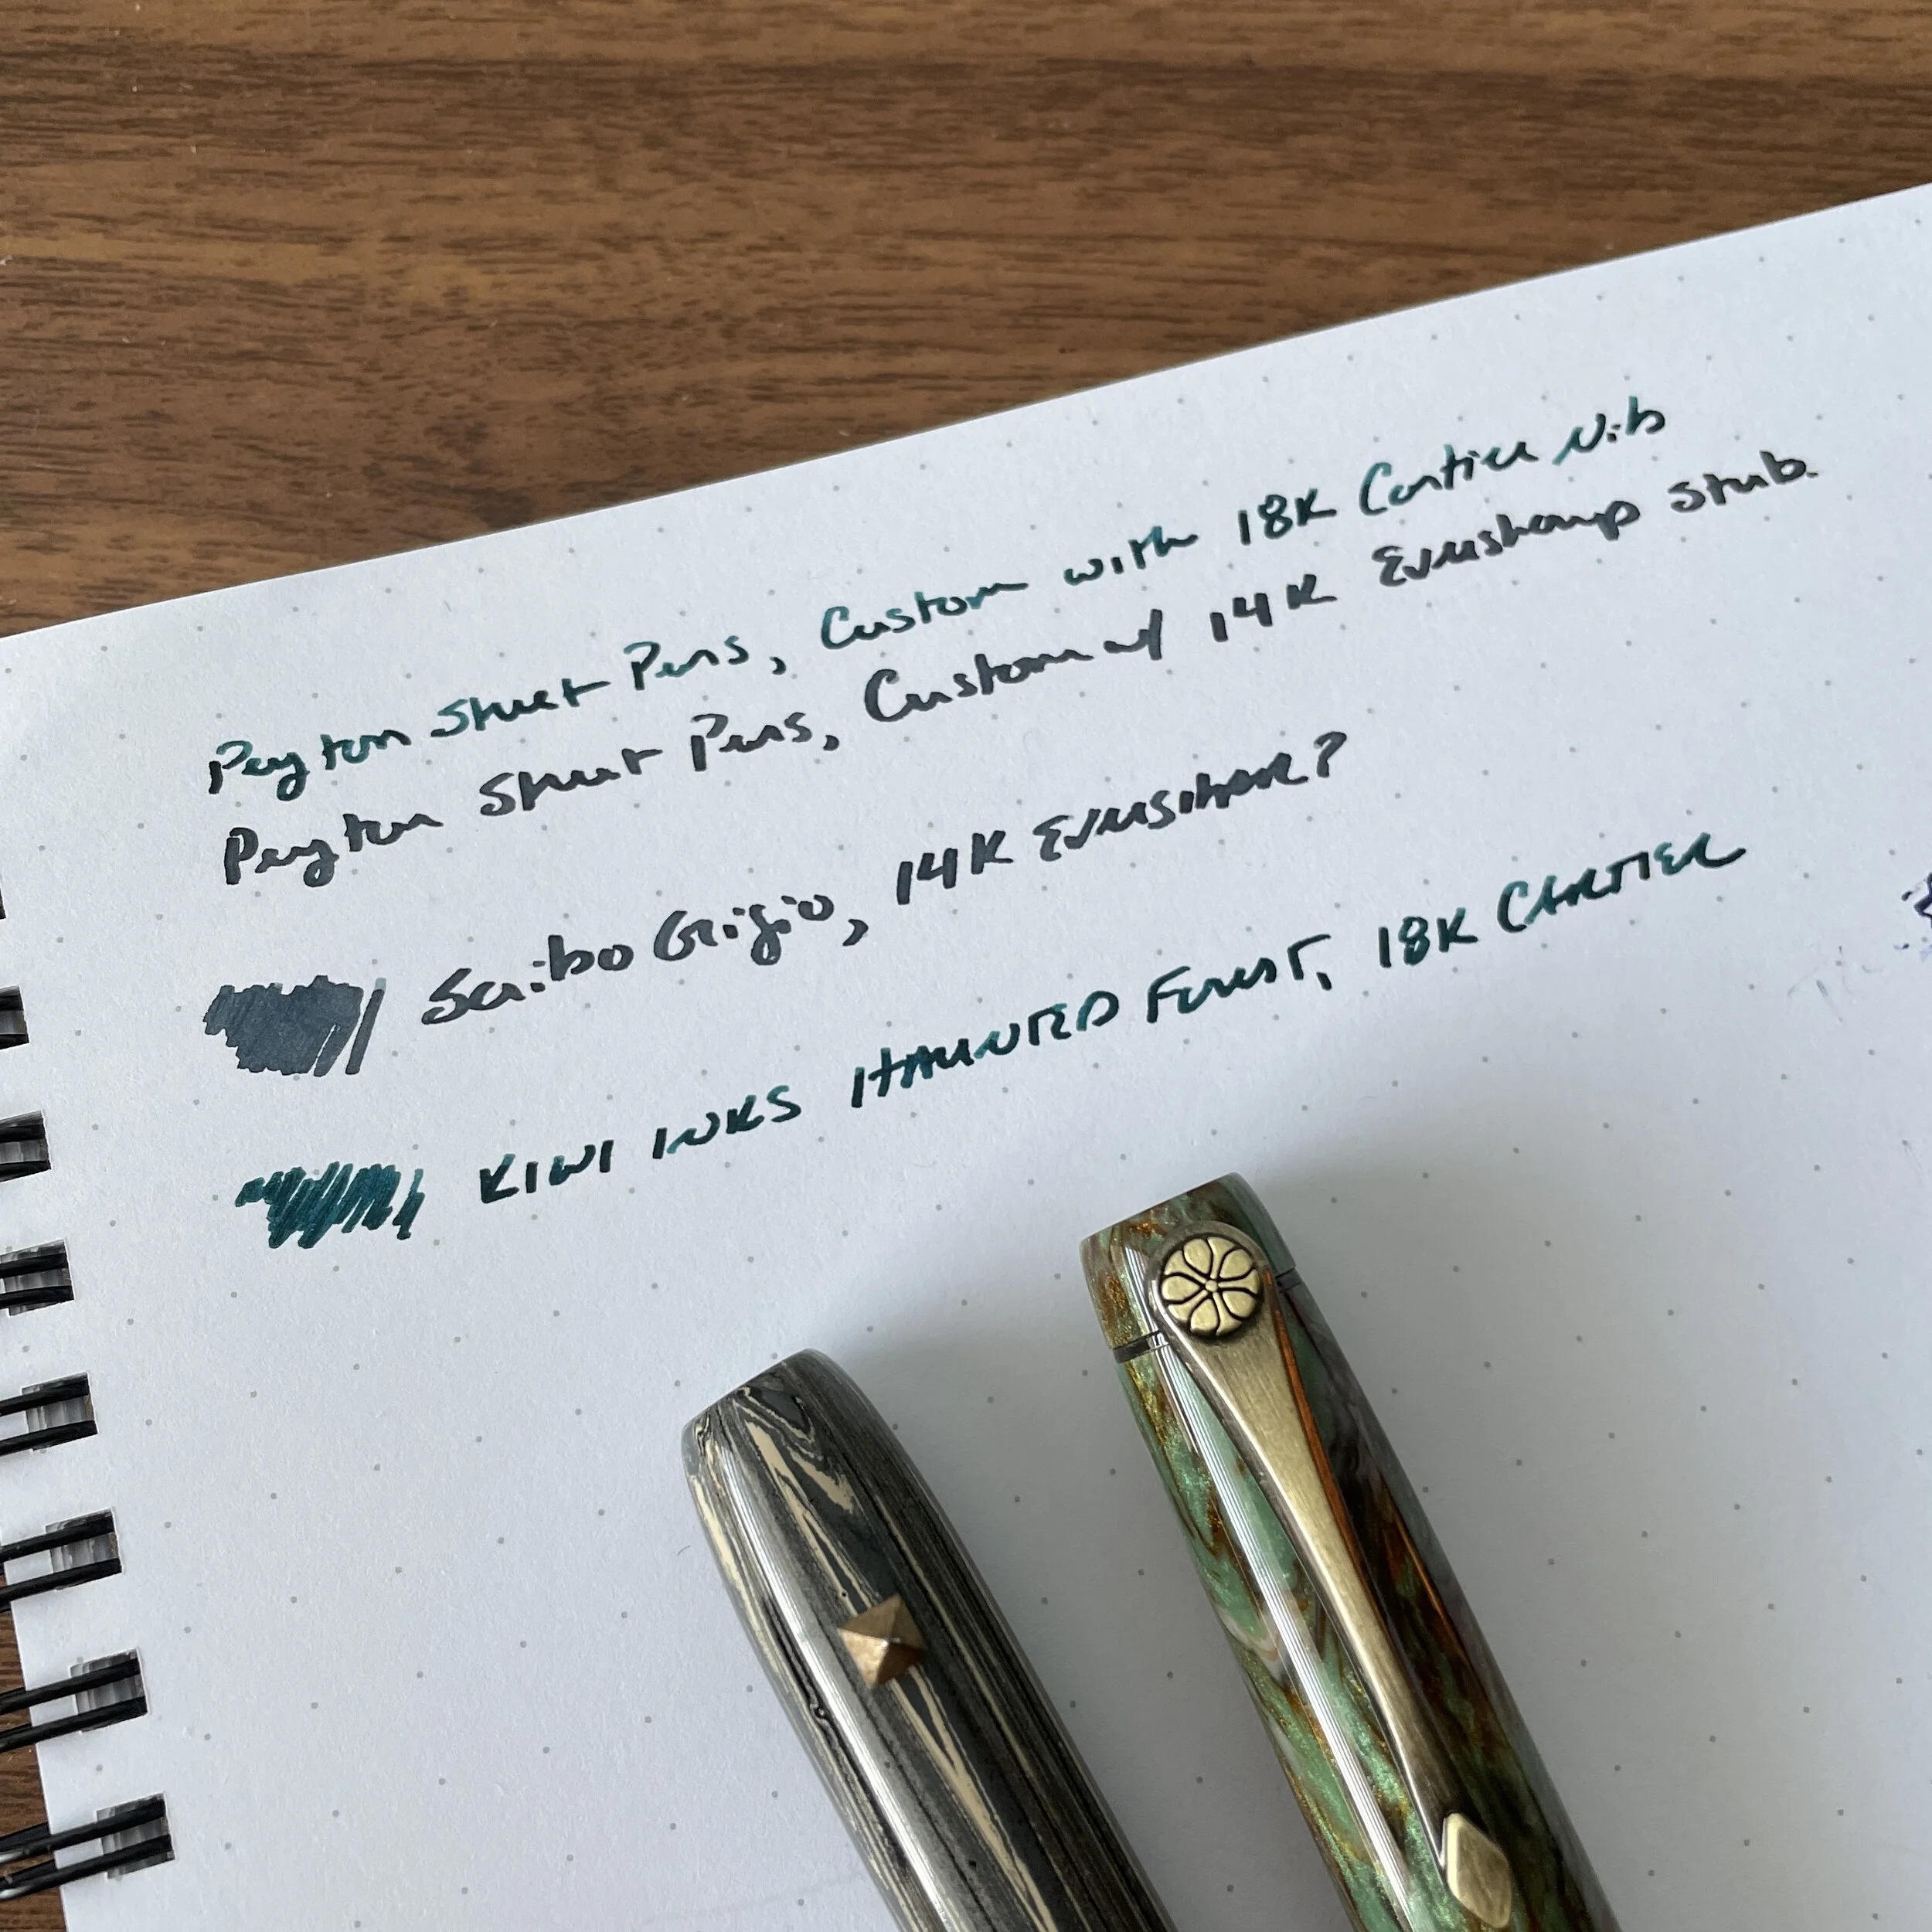 Peyton Street Pens, Custom with 18K Cartier Nib
Peyton Street Pens, Custom w/ 14K Eversharp Stub.
Scribo Grigio, 14K Eversharp?
KIWI INKS HAUNTED FOREST, 18K CARTIER